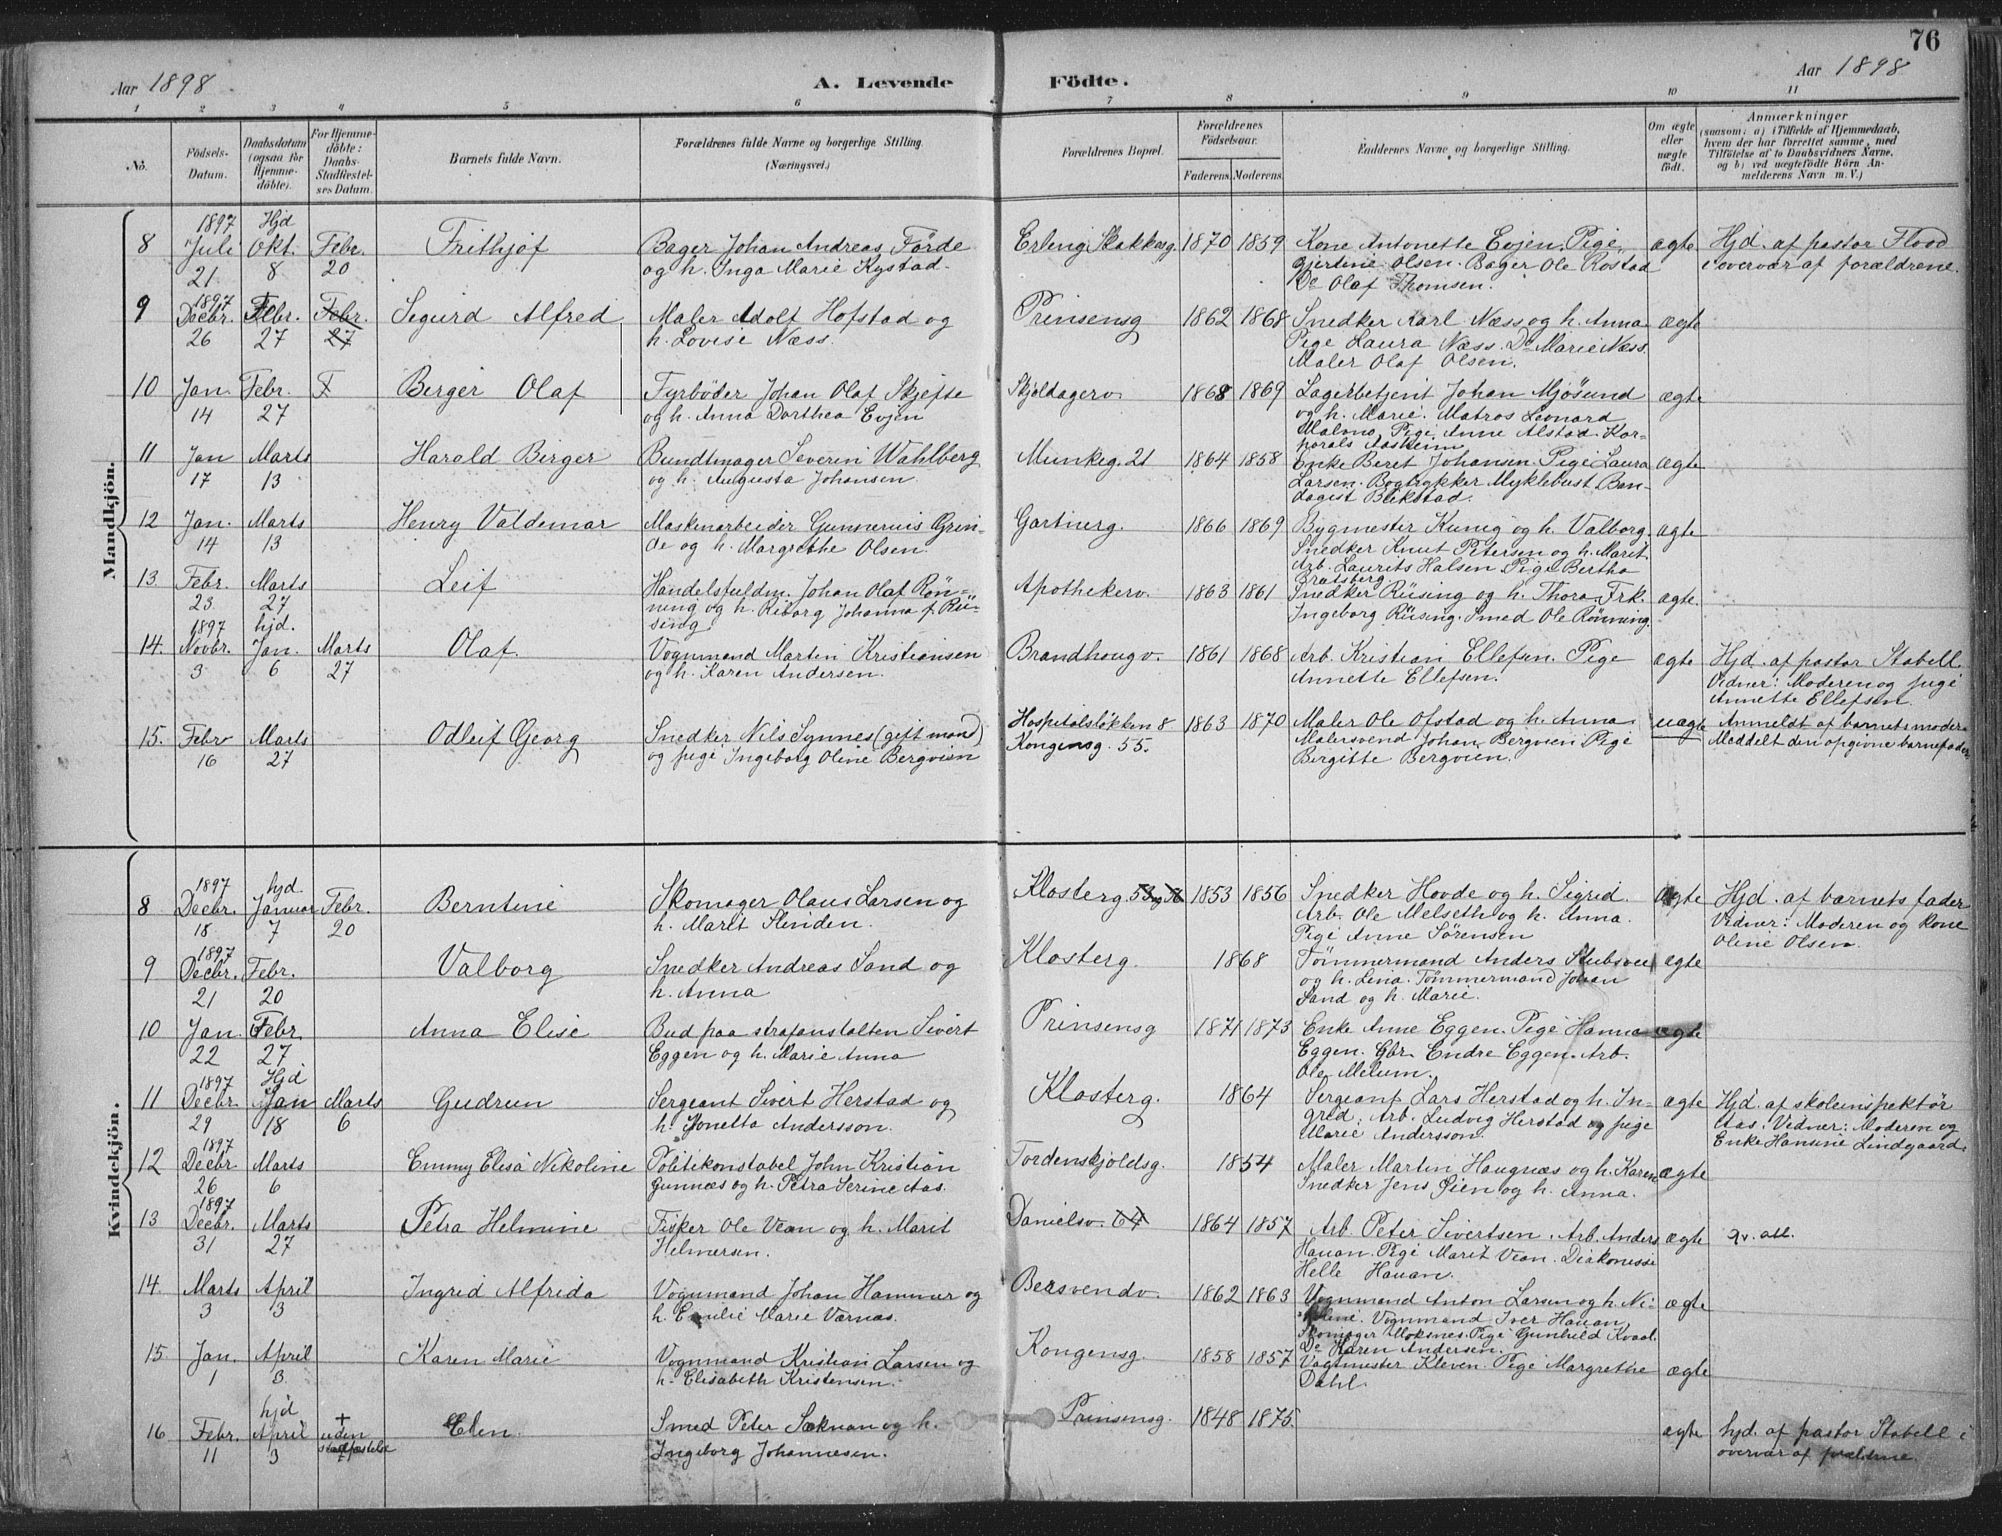 76
Aar 1898
A. Levende
Födte.
Aar 1898
1 2 3 4 5 6 7 8 9 10 11
No.
Födsels-
Datum.
Daabsdatum
(ogsaa for
Hjemme-
döbte).
For Hjemme-
döbte:
Daabs-
Stadfæstel-
ses Datum.
Barnets fulde Navn.
Forældrenes fulde Navne og borgerlige Stilling.
(Næringsvei.)
Forældrenes Bopæl.
Forældrenes
Födselsaar.
Faderens. Moderens.
Faddernes Navne og borgerlige Stilling.
Om ægte
eller
uægte
födt.
Anmærkninger
(saasom: a) i Tilfælde af Hjemmedaab,
hvem der har forrettet samme, med
Tilföielse af to Daabsvidners Navne.
og b) ved uægtefödte Börn An-
melderens Navn m. V.)
Mandkjön.
1897 Hjd
8 Juli Okt. Febr. Frithjof Bager Johan Andreas Förde Erling Skakkesg. 1870 1859 Kone Antonette Evjen. Pige ægte Hjd. af pastor Flood
21 8 20 og h. Inga Marie Kystad. Gjertine Olsen. Bager Ole Röstad i overvær af forældrene.
Do Olaf Thomsen.
1897
9 Decbr. Febr. Febr. Sigurd Alfred Maler Adolf Hofstad og Prinsensg 1862 1868 Snedker Karl Næss og h. Anna ægte
26 27 27 h. Lovise Næss. Pige Laura Næss. Do Marie Næss.
Maler Olaf Olsen.
10 Jan. Febr. F Berger Olaf Fyrböder Johan Olaf Skjefte Skjoldagerv. 1868 1869 Lagerbetjent Johan Mjösund ægte
14 27 og h. Anna Dorthea Evjen og h. Marie. Matros Leonard
Malmo. Pige Anne Alstad. Kor-
porals Aasheim
11 Jan Marts Harald Birger Bundtmager Severin Wahlberg Munkeg. 21 1864 1858 Enke Beret Johansen. Pige Laura ægte
17 13 og h. Augusta Johansen Larsen. Bogtrykker Myklebust. Ban-
dagist Blekstad.
12 Jan. Marts Henry Valdemar Maskinarbeider Gunnerius Grin- Gartnerg. 1866 1869 Bygmester Kunig og h. Valborg. ægte
14 13 de og h. Margrethe Olsen. Snedker Knut Petersen og h. Marit.
Arb. Laurits Halsen. Pige Bertha
Bratsberg
13 Febr. Marts Leif Handelsfuldm. Johan Olaf Rön- Apothekerv. 1863 1861 Snedker Rüsing og h. Thora. Frk. ægte.
23 27 ning og h. Riborg Johanna f. Rü- Ingeborg Rüsing. Smed Ole Rönning.
sing
1897 hjd.
14. Novbr. Jan. Marts Olaf. Vognmand Martin Kristiansen Brandhougv. 1861 1868 Arb. Kristian Ellefsen. Pige ægte Hjd. af pastor Stabell
3 6 27 og h. Karen Andersen. Annette Ellefsen. Vidner: Moderen og pige
Annette Ellefsen
15. Febr Marts Odleif Georg Snedker Nils Synnes (gift mand) Hospitalslökken 8 1863 1870 Maler Ole Ofstad og h. Anna. uægte Anmeldt af barnets moder.
16 27 og pige Ingeborg Oline Bergvien Kongensg. 55. Malersvend Johan Bergvien. Pige Meddelt den opgivne barnefader
Birgitte Bergvien.
Kvindekjön.
1897 hjd.
8 Decbr. Januar Febr. Berntine Skomager Olaus Larsen og Klosterg. 53 1853 1856 Snedker Hovde og h. Sigrid. ægte Hjd. af barnets fader
18 7 20 h. Marit Slinden. Arb. Ole Melseth og h. Anna. Vidner: Moderen og kone
Pige Anne Sörensen Oline Olsen.
1897
9 Decbr. Febr. Valborg Snedker Andreas Sand og Klosterg. 1868 Tömmermand Anders Stubsvee ægte
21 20 h. Anna og h. Lina. Tömmermand Johan
Sand og h. Marie.
10 Jan. Febr. Anna Elise Bud paa strafanstalten Sivert Prinsensg 1871 1873 Enke Anne Eggen. Pige Hanna ægte
22 27 Eggen og h. Marie Anna Eggen. Gbr. Endre Eggen. Arb.
Ole Melum.
1897 Hjd
11 Decbr. Jan Marts Gudrun Sergeant Sivert Herstad og Klosterg. 1864 Sergeant Lars Herstad og h. In- ægte Hjd. af skoleinspektör
29 18 6 h. Jonetta Andersson. grid. Arb. Ludvig Herstad og pige Aas. Vidner: Moderen og
Marie Andersson. Enke Hansine Lindgaard.
1897
12 Decbr Marts Emmy Elisa Nikoline Politikonstabel John Kristian Tordenskjoldsg. 1854 Maler Martin Haugnæs og h. Karen ægte
26 6 Gunnæs og h. Petra Serine Aas. Snedker Jens Øien og h. Anna.
1897
13 Decbr. Marts Petra Helmine Fisker Ole Vean og h. Marit Danielsv. 64 1864 1857 Arb. Peter Sivertsen. Arb. Anders ægte
31 27 Helmersen. Hauan. Pige Marit Vean. Diakonisse
Helle Hauan.
14. Marts April Ingrid Alfrida Vognmand Johan Hammer og Bersvendv. 1862 1863 Vognmand Anton Larsen og h. Ni- ægte
3 3 h. Emilie Marie Værnæs. koline. Vognmand Iver Hauan.
Skomager Moksnes. Pige Gunhild Kvaal.
Do Karen Andersen.
15 Jan. April Karen Marie Vognmand Kristian Larsen og Kongensg. 1858 1857 Vagtmester Kleven. Pige Margrethe ægte
1 3 h. Elisabeth Kristensen. Dahl.
hjd +
16 Febr. April uden Elen Smed Peter Sæknan og h. Prinsensg. 1848 1875. ægte hjd. af pastor Stabell i
11 3 stadfæstelse Ingeborg Johannesen. overvær af forældrene.